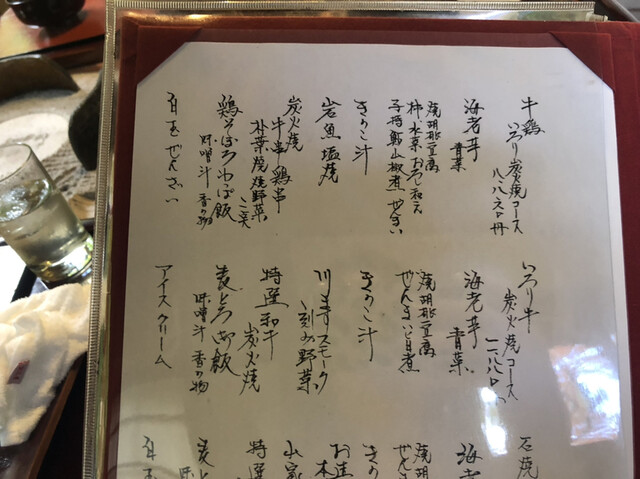 牛鶏
いろり炭焼コース
海老芋
青菜
焼胡麻豆腐
柿水菜おろし和え
子持鮎山椒煮 ぜんまい
きのこ汁
岩魚塩焼
炭火焼
牛串鶏串
朴葉焼焼野菜
鶏そぼろわっぱ飯
味噌汁 香の物
白玉ぜんざい
いろり牛
炭火焼コース
海老芋
青菜
焼胡麻豆腐
ぜんまい旨煮
きのこ汁
川ますスモーク
刻み野菜
特選和牛
炭火焼
麦とろご飯
味噌汁 香の物
アイスクリーム
石焼
海老
焼胡
ぜんま
きの
お造
本
山家
特選
麦と
味噌
白玉